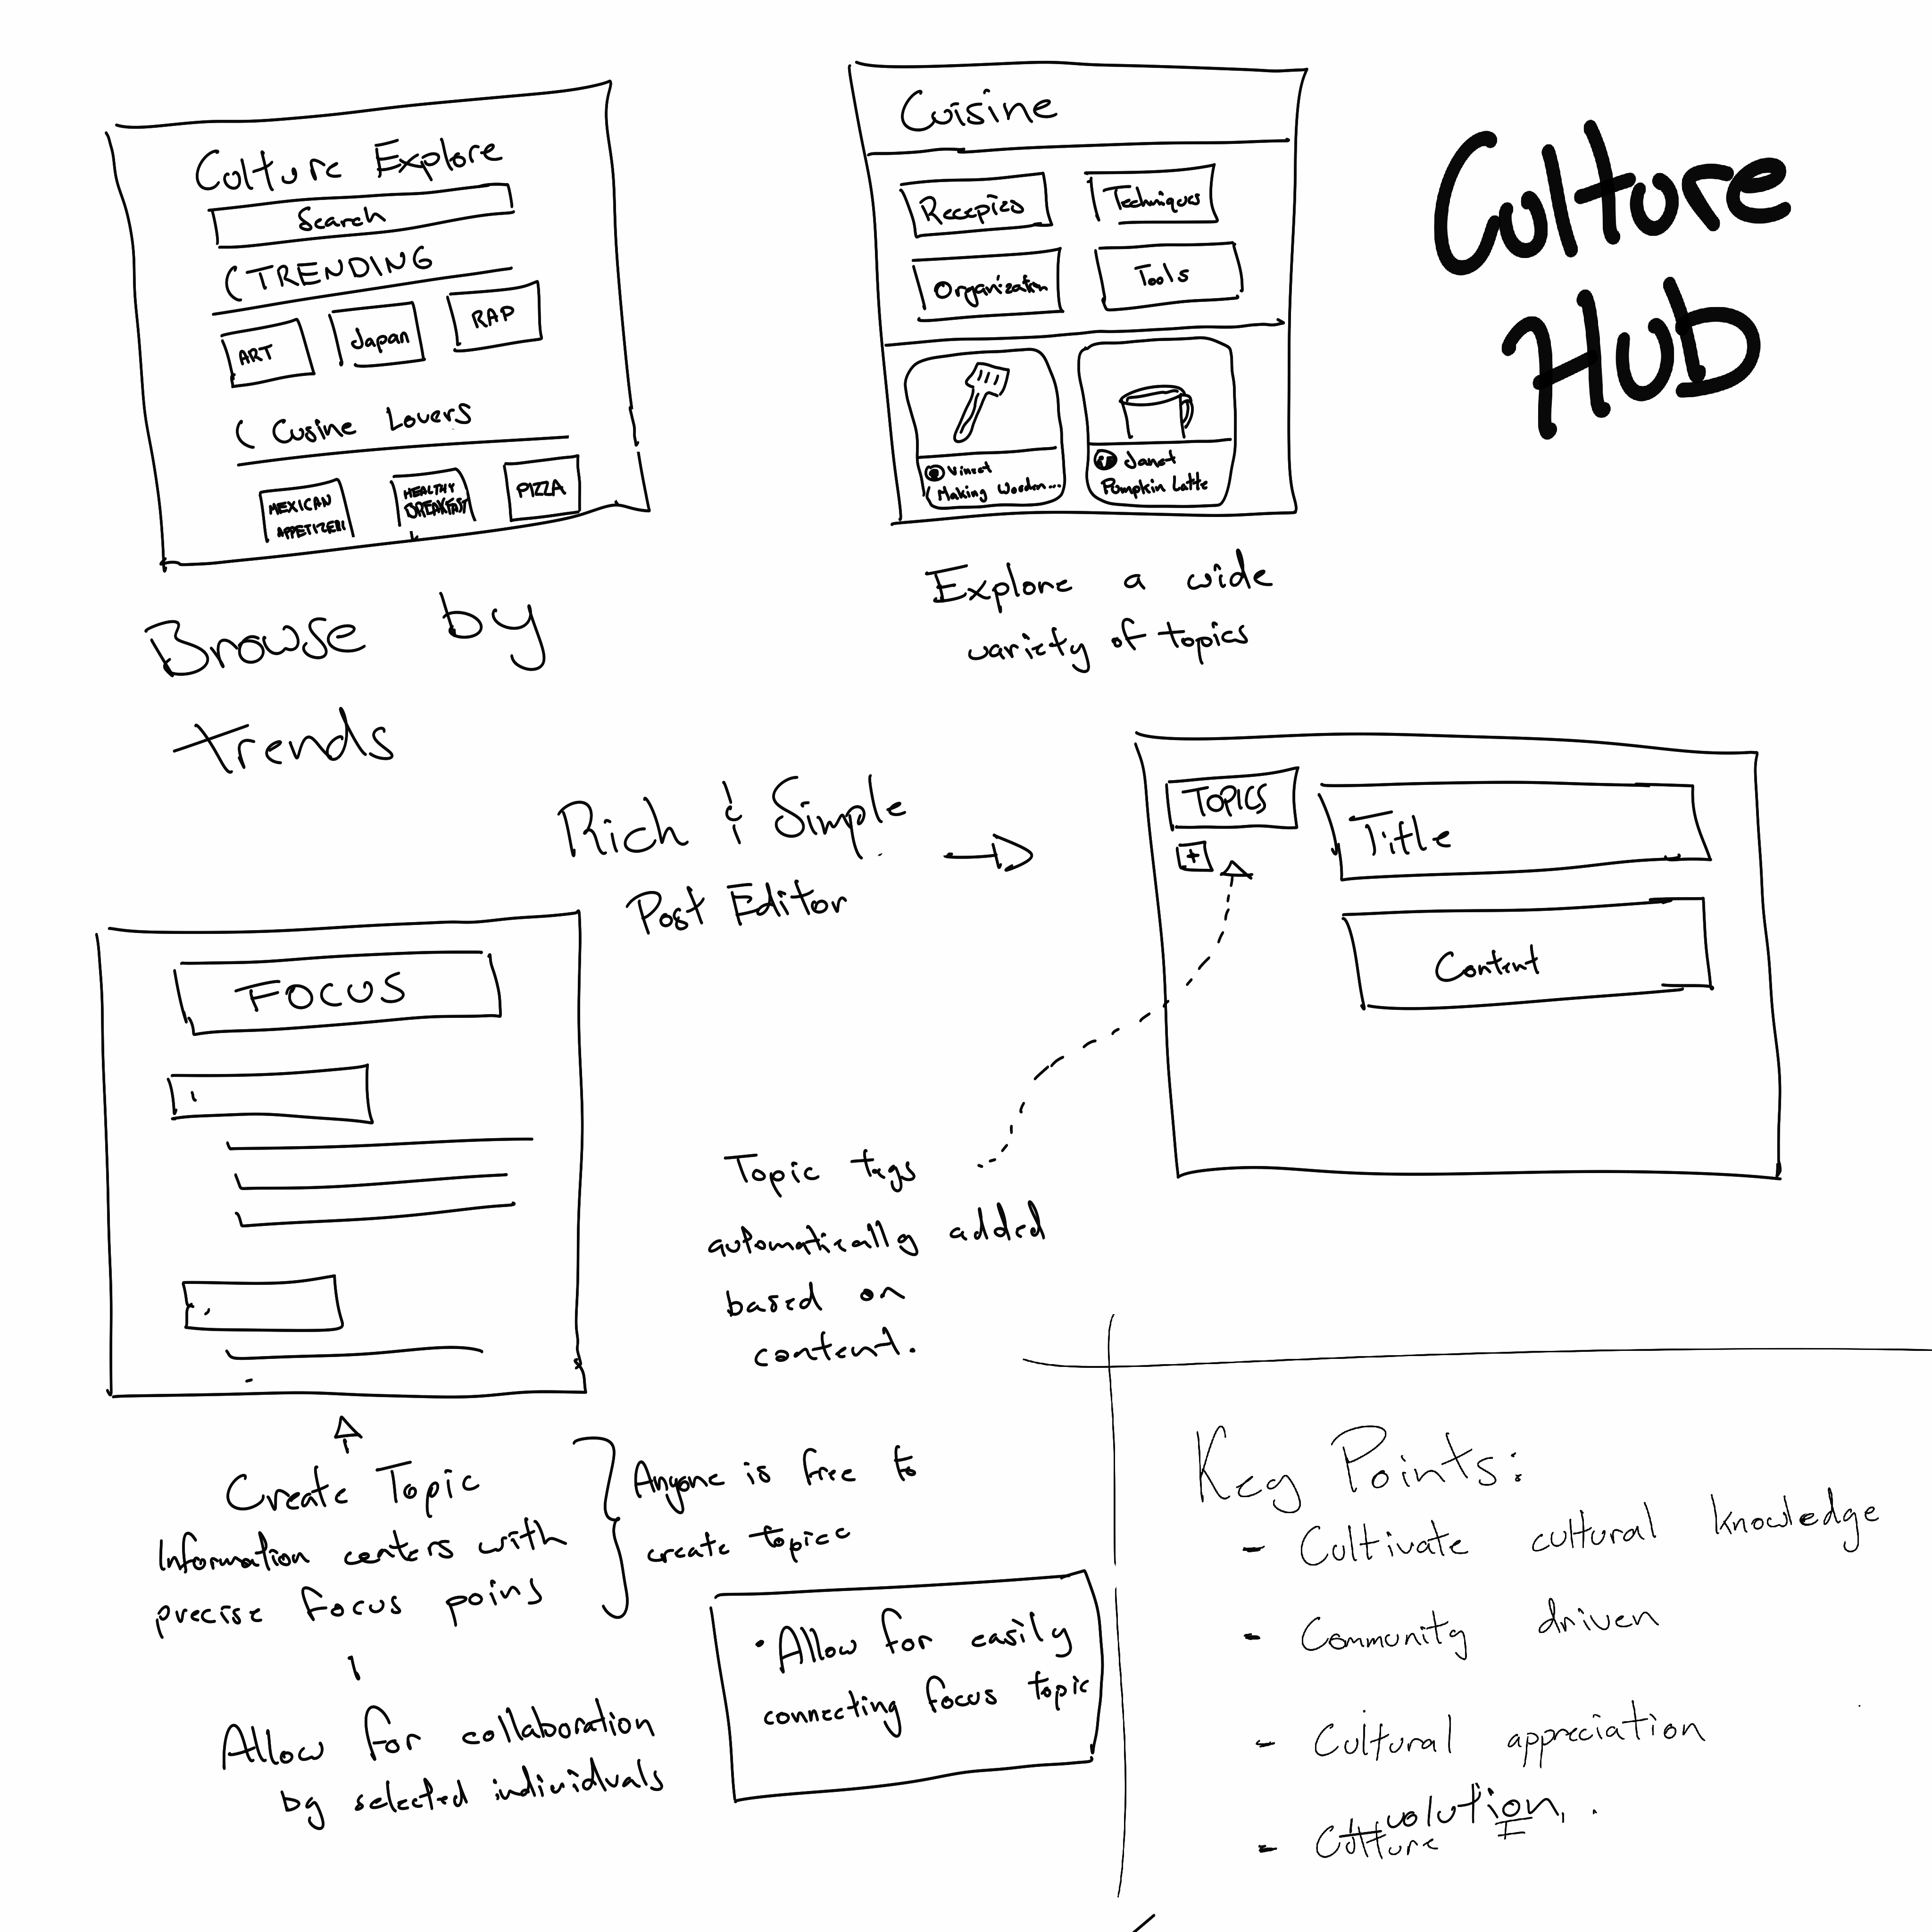 Culture Hub
Culture Explore
Search
TRENDING
ART
Japan
RAP
Cusine Lovers
MEXICAN
APPETIZERI
HEALTHY
BREAKFAST
PIZZA
Browse by
trends
Cuisine
Recepies
Techniques
Organization
Tools
Vincet
Making Wooden...
Janet
Pumpkin Latte
Explore a wide
variety of topics
Rich & Simple
Post Editor
TOPICS
+
Title
Content
Topic tags
automatically added
based on
content.
FOCUS
Create Topic
Information centers with
precise focus poins
Anyone is free to
create topics
Allow for collaboration
by selected individuals
• Allow for easily
connecting focus topic
Key Points:
- Cultivate cultural knowledge
- Community driven
- Cultural appreciation
- Culture